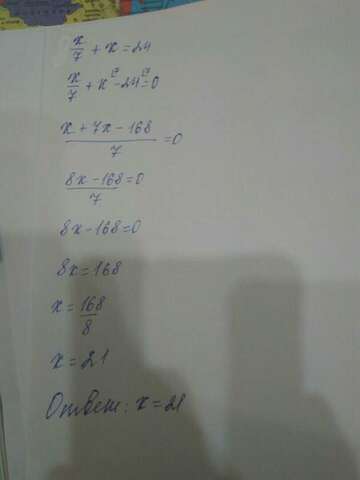 x/7 + x = 24
x/7 + x⁽⁷ - 24⁽⁷ = 0
x + 7x - 168 / 7 = 0
8x - 168 / 7 = 0
8x - 168 = 0
8x = 168
x = 168/8
x = 21
Ответ: x = 21